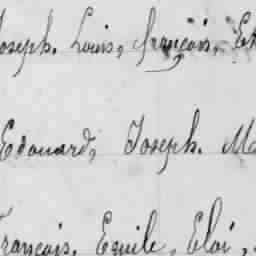 Joseph. Louis, françois,
Edouard, Joseph. Ma
François. Emile, Eloi,